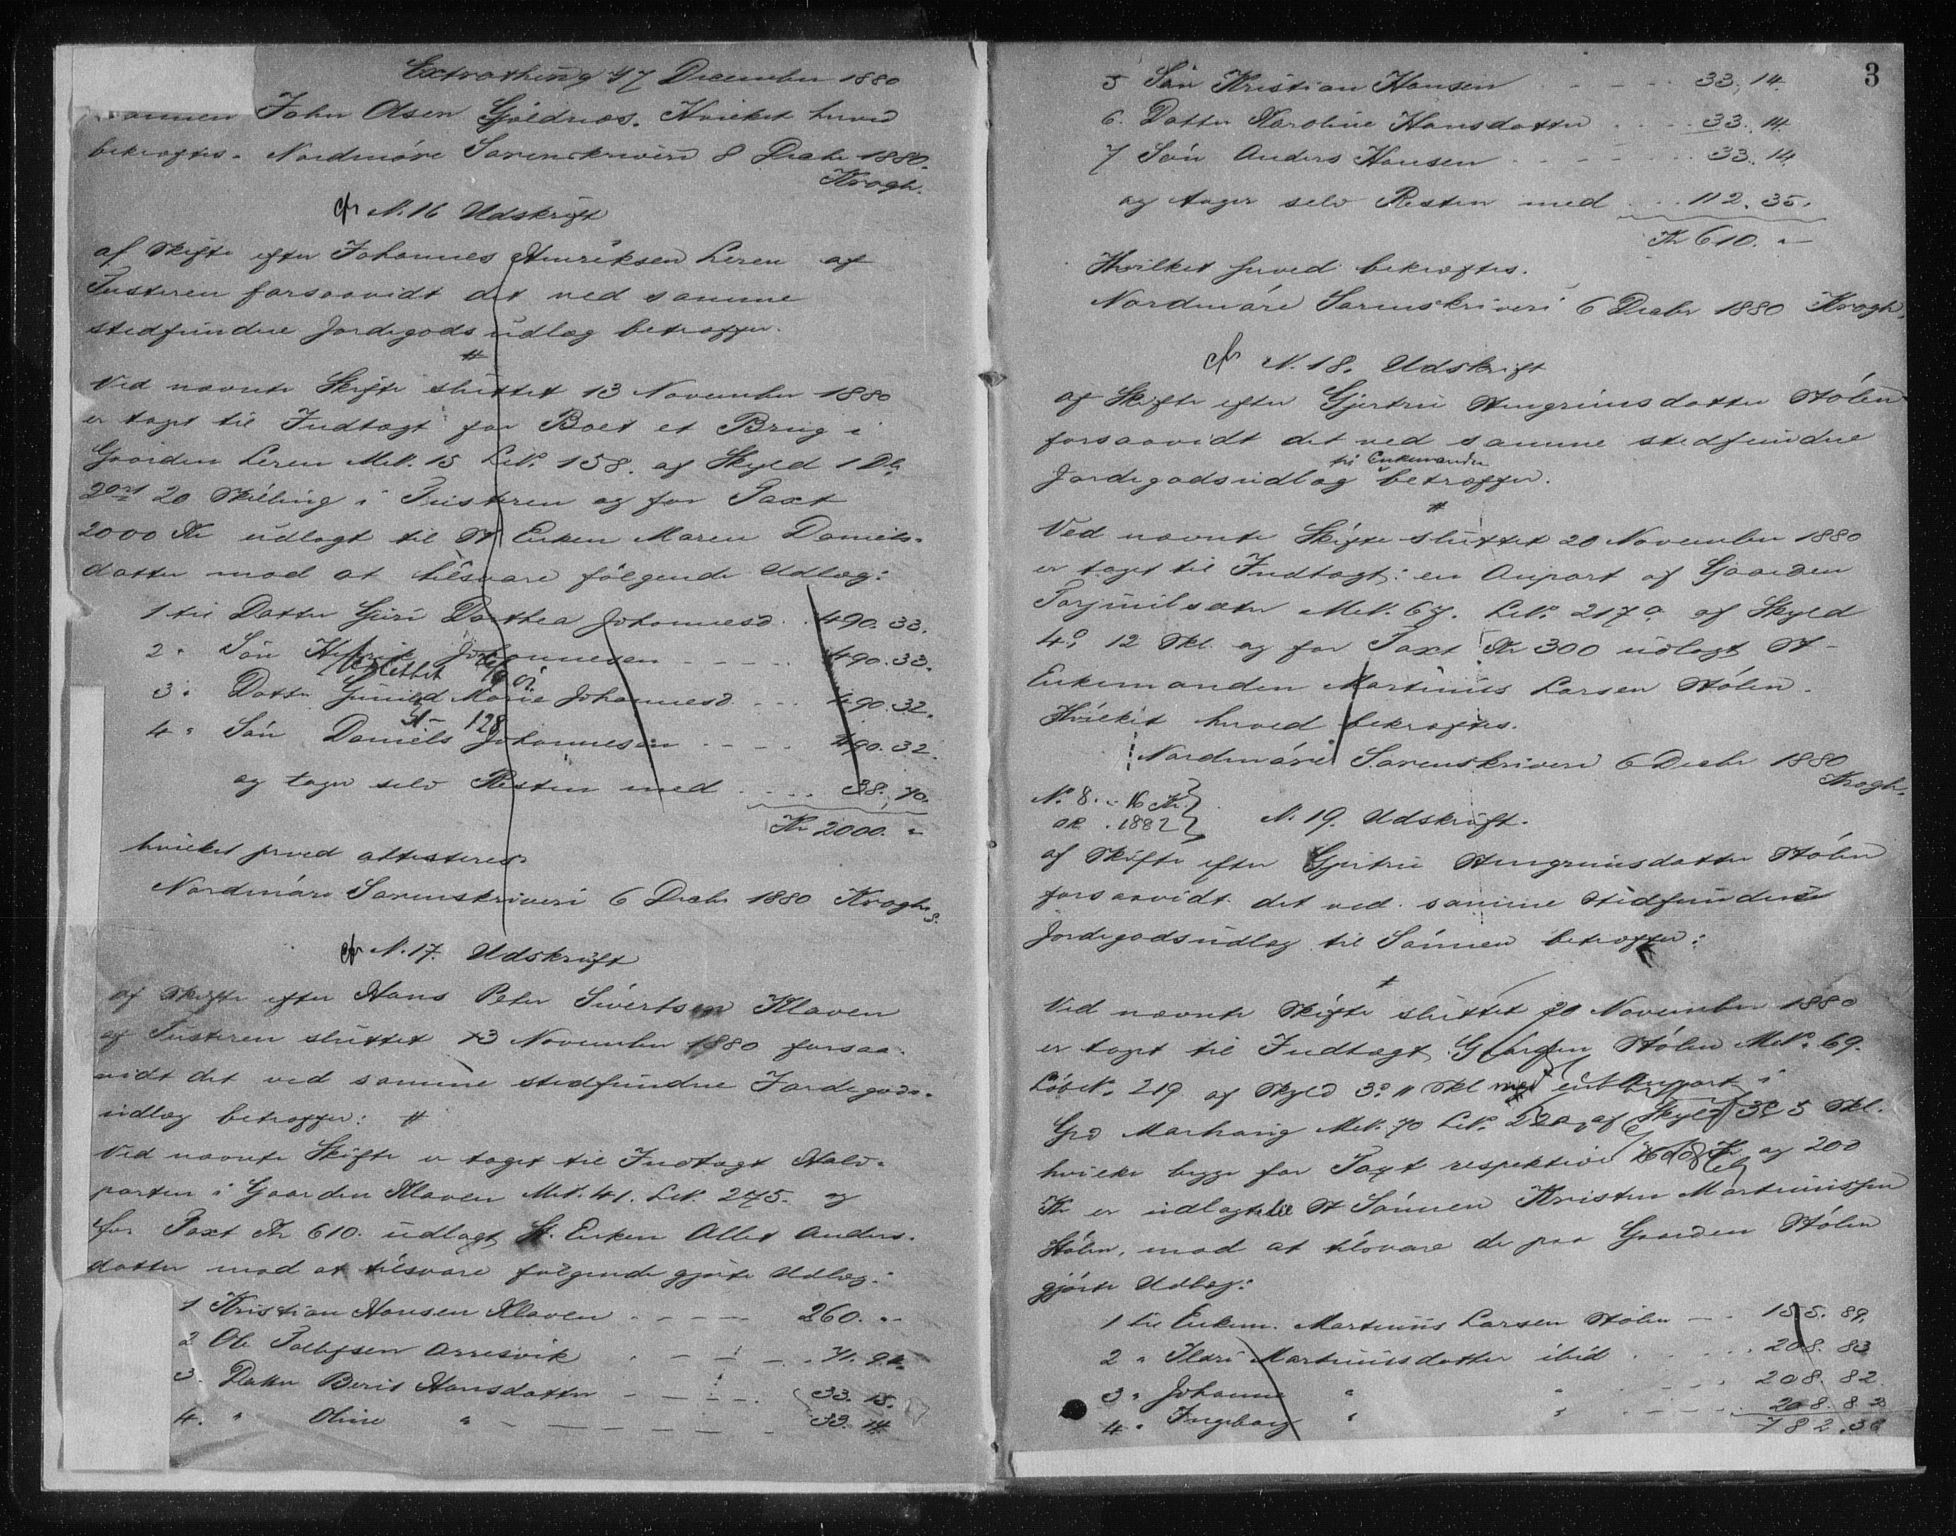 Extrathing 4/7 December 1880
John Olsen Gjøldnæs. Hvilket herved
bekræftes. Nordmøre Sorenskriveri 8 Decbr 1880.
Krogh.
cfr N. 16 Udskrift
af Skifte efter Johannes Henriksen Leren af
Tusteren forsaavidt det ved samme
stedfundne Jordegodsudlæg betræffer.
#
Ved nævnte Skifte sluttet 13 November 1880
er taget til Indtægt for Boet et Brug i
Gaarden Leren Mt.N. 15 L.N. 158. af Skyld 1 Dl.
2 ort 20 Skilling i Tusteren og for Taxt
2000 Kr udlagt til St Enken Maren Daniels-
datter mod at tilsvare følgende Udlæg:
1 til Datter Guri Dorthea Johannesd. . 490. 33.
2 " Søn Henrik Johannesen - - - - 490. 33.
3 " Datter Gunild Marie Johannesd - - - 490. 32.
128
4 " Søn Daniels Johannesen - - - - 490. 32.
og tager selv Resten med . . . . 38. 70.
Kr 2000. "
hvilket herved attesteres
Nordmøre Sorenskriveri 6 Decbr 1880 Krogh
cfr N. 17. Udskrift
af Skifte efter Hans Peter Sivertsen Klaven
af Tusteren sluttet 13 November 1880 forsaa-
vidt det ved samme stedfundne Jordegods-
udlæg betræffer: #
Ved nævnte Skifte er taget til Indtægt Halv-
parten i Gaarden Klaven Mt.N. 41. L.N. 275. og
for Taxt Kr 610. udlagt St. Enken Allet Anders-
datter mod at tilsvare følgende gjorte Udlæg:
1 Kristian Hansen Klaven - - - - 260. "
2 Ole Tollefsen Orresvik - - - - 71. 92.
3. Datter Berit Hansdatter - - - - 33. 15.
4. " Oline " - - - - - 33. 14.
3
5 Søn Kristian Hansen - - - - 33. 14.
6. Datter Karoline Hansdatter . . . . 33. 14.
7 Søn Anders Hansen - - - - - 33. 14
og tager selv Resten med . . . 112. 35.
Kr 610. "
Hvilket herved bekræftes.
Nordmøre Sorenskriveri 6 Decbr 1880 Krogh.
cfr N. 18. Udskrift
af Skifte efter Gjertru Stengrimsdatter Stølen
forsaavidt det ved samme stedfundne
til Enkemanden
Jordegodsudlæg betræffer.
#
Ved nævnte Skifte sluttet 20 November 1880
er taget til Indtægt: en Anpart af Gaarden
Torjuulsæter Mt.N. 67. L.N. 217a af Skyld
4 o 12 Skl og for Taxt Kr 300 udlagt St-
Enkemanden Martinus Larsen Stølen.
Hvilket herved bekræftes.
Nordmøre Sorenskriveri 6 Decbr 1880
Krogh.
N. 8. 16 Kr.
1882
N. 19. Udskrift.
af Skifte efter Gjertru Stengrimsdatter Stølen
forsaavidt det ved samme stedfundne
Jordegodsudlæg til Sønnen betræffer:
+
Ved nævnte Skifte sluttet 20 November 1880
er taget til Indtægt Gaarden Stølen Mt.N. 69.
LøbeN. 219 af Skyld 3 o " Skl med en Anpart i
Grd Marhaug Mt.N. 70 L.N. 220a af Skyld 3 o 5 Skl.
hvilke begge for Taxt respektive Kr og 200
Kr er udlagte til St Sønnen Kristen Martinussen
Stølen, mod at tilsvare de paa Gaarden Stølen
gjorte Udlæg:
1 til Enkem. Martinus Larsen Stølen - - 155. 89.
2 " Ildri Martinusdatter ibid . . . . 208. 83
3 " Johanne " " - - - - 208. 82.
4 " Ingeborg " " - - - - 208. 82
782. 36